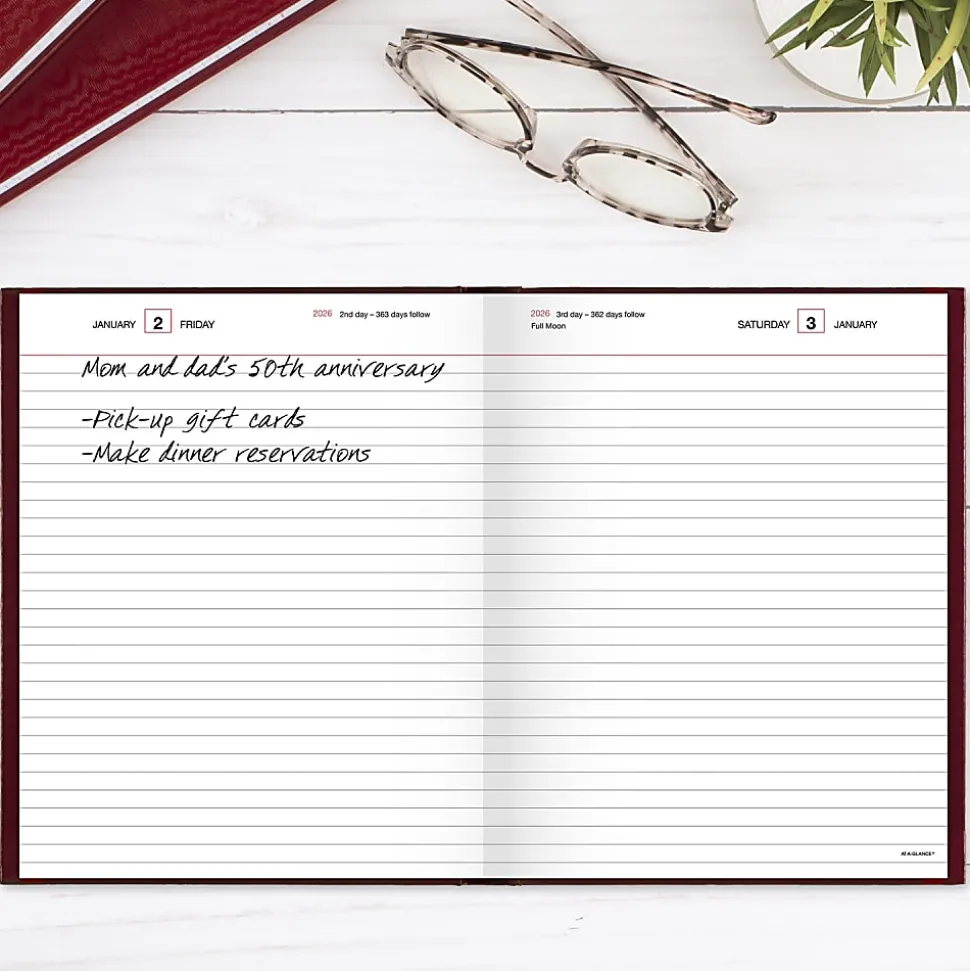 JANUARY 2 FRIDAY
2026 2nd day – 363 days follow
Mom and dad's 50th anniversary
-Pick-up gift cards
-Make dinner reservations
2026 3rd day – 362 days follow
Full Moon
SATURDAY 3 JANUARY
AT-A-GLANCE®